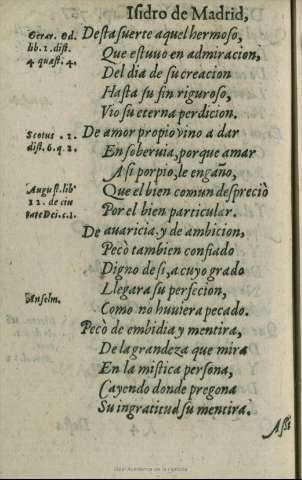 Isidro de Madrid,
Desta suerte aquel hermoso,
Que estuuo en admiracion,
Del dia de su creacion
Hasta su fin riguroso,
Vio su eterna perdicion.
De amor propio vino a dar
En soberuia, porque amar
A si porpio, le engaño,
Que el bien comun despreciò
Por el bien particular.
De auaricia. y de ambicion,
Pecò tambien confiado
Digno de si, a cuyo grado
Llegara su perfecion,
Como no huuiera pecado.
Pecò de embidia y mentira,
De la grandeza que mira
En la mistica persona,
Cayendo donde pregona
Su ingratitud su mentira.
Assi
lib. 2. dist.
4. quæst. 4.
Scotus. 2.
dist. 6. q. 2.
August. lib
12. de ciu
tate Dei. c. 1.
Anselm.